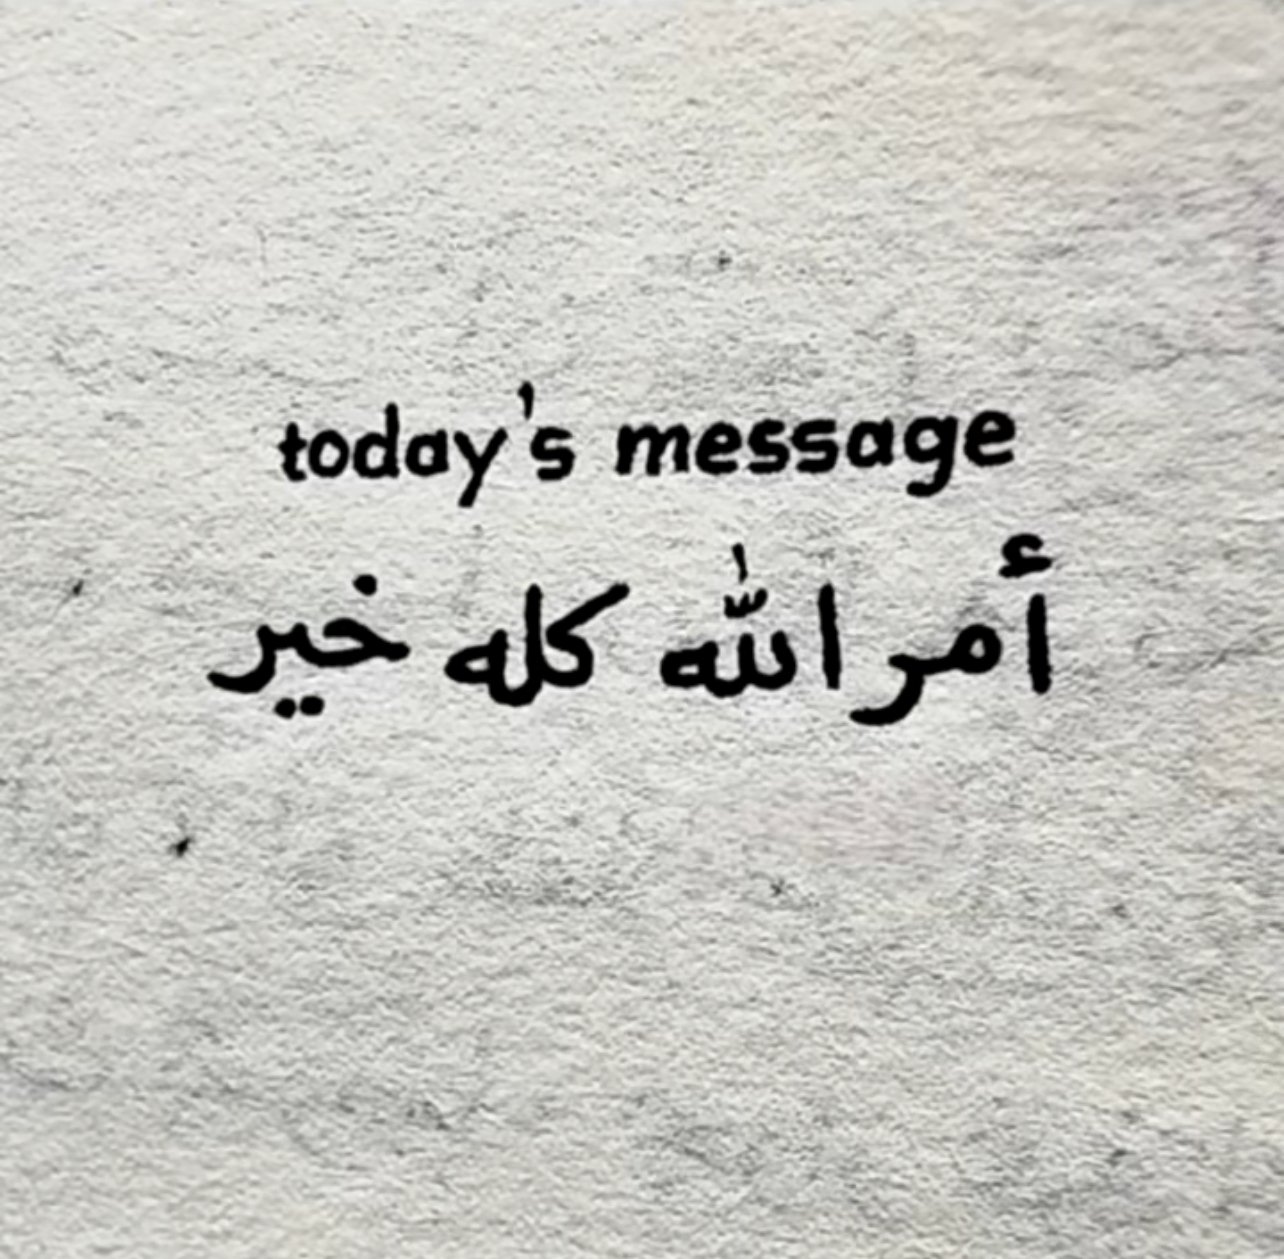 today's message
أمر اللّٰه كله خير